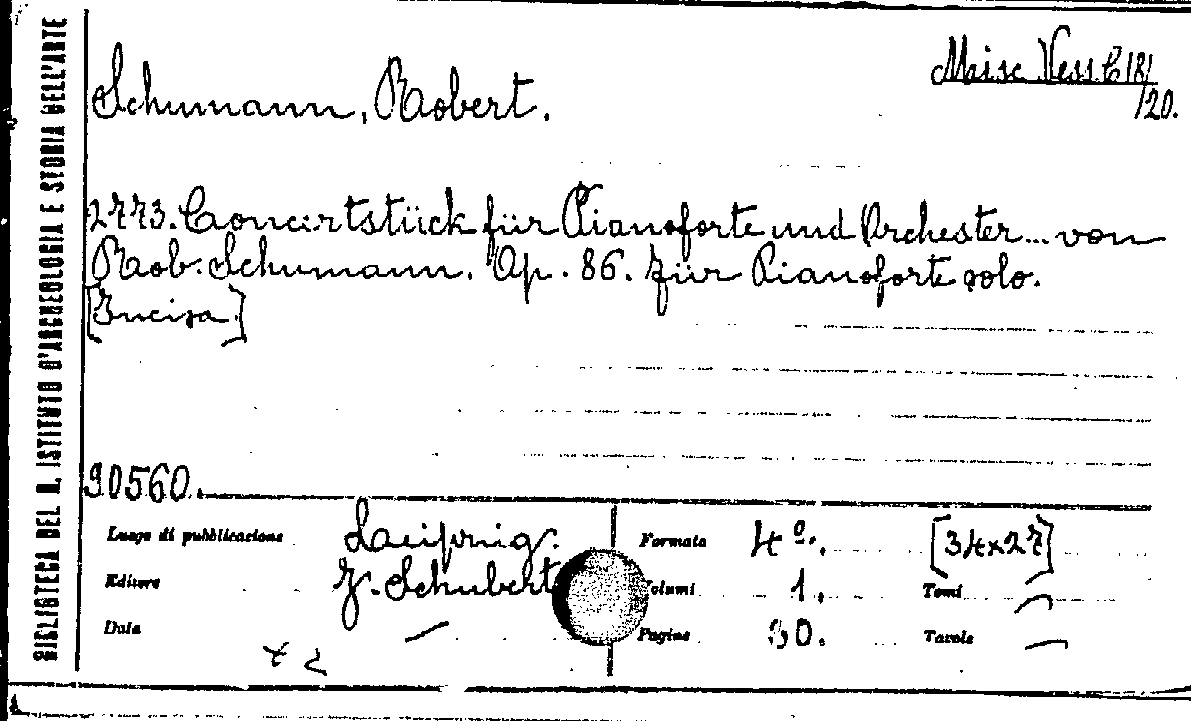 BIBLIOTECA DEL R. ISTITUTO D'ARCHEOLOGIA E STORIA DELL'ARTE
Misc. Vess. C 181/20.
Schumann, Robert.
2773. Concertstück für Pianoforte und Orchester... von
Rob. Schumann. Op. 86. Für Pianoforte solo.
[Incisa]
90560.
Luogo di pubblicazione Leipzig. Formato 4º. [34x27]
Editore J. Schubert Volumi 1. Tomi —
Data — Pagine 30. Tavole —